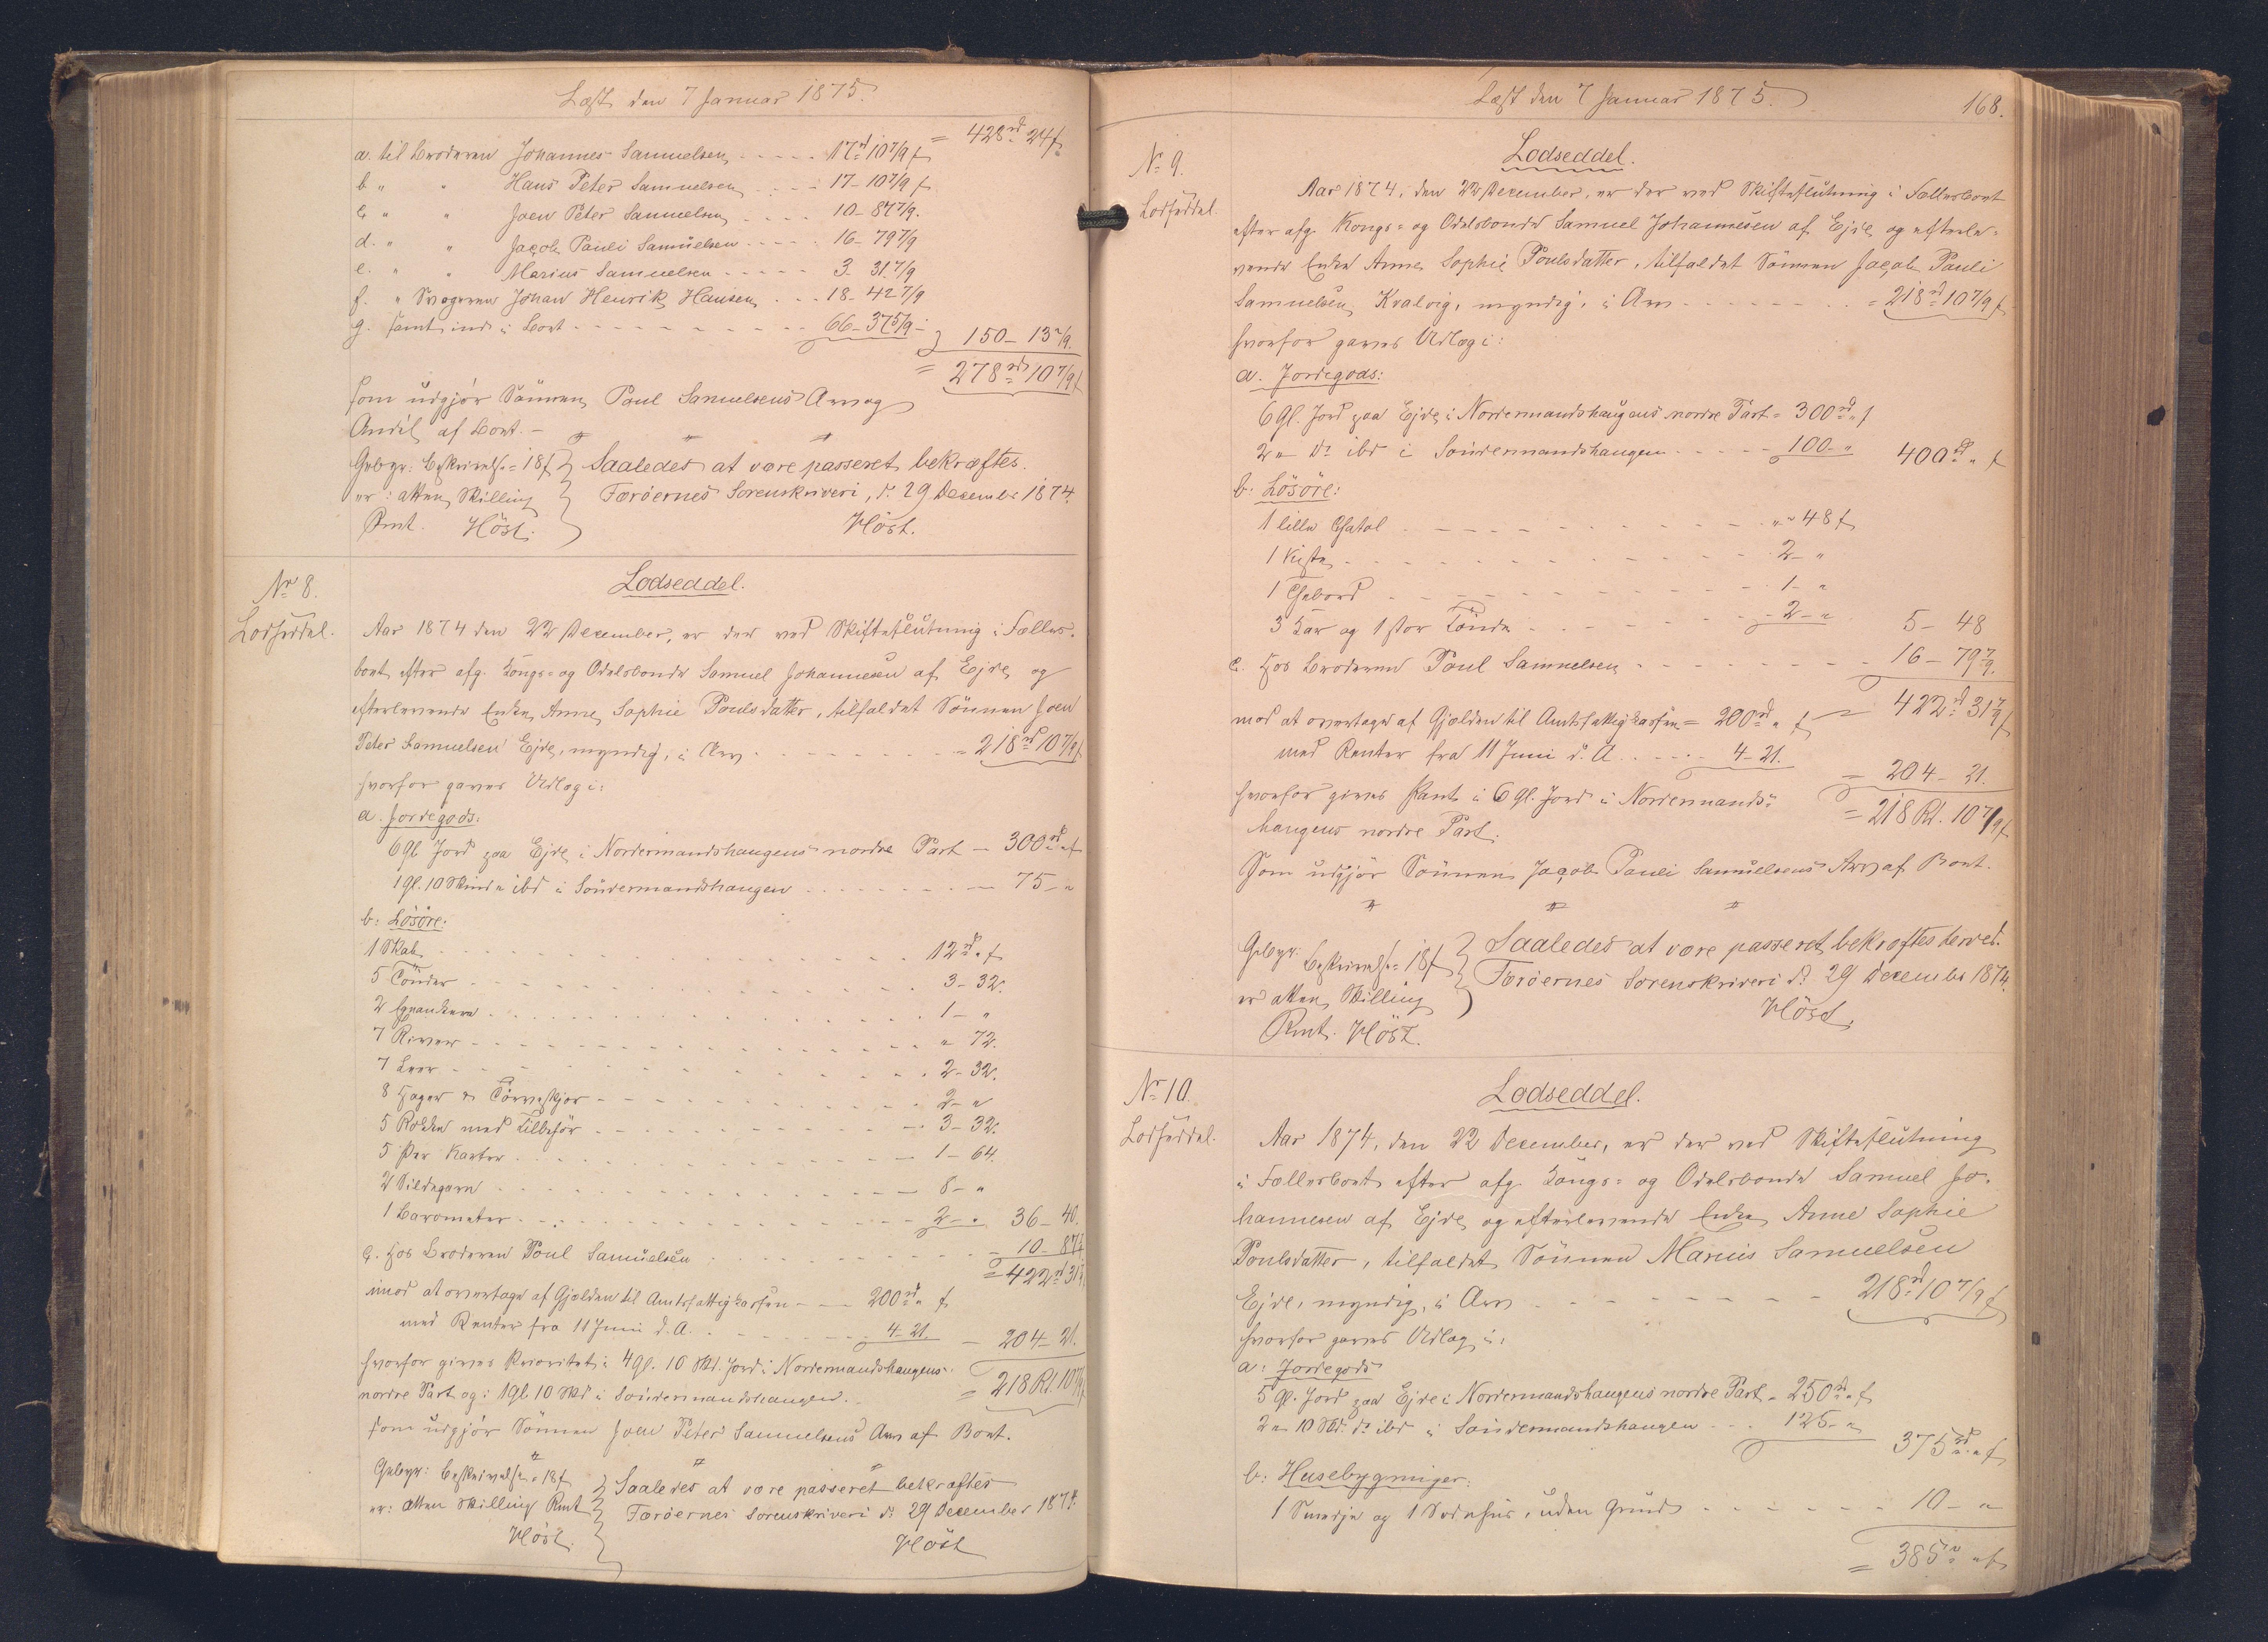 Læst den 7 Januar 1875.
= 428rd 24 f
a. til Broderen Johannes Samuelsen - - - - - 17rd 10 7/9 f
b " " Hans Peter Samuelsen - - - - 17 - 10 7/9 f
c " " Joen Peter Samuelsen - - - - 10 - 87 7/9.
d. " " Jacob Pauli Samuelsen - - - - 16 - 79 7/9
e. " " Marius Samuelsen - - - - - 3. 31 7/9
f. " Svogeren Johan Henrik Hansen - - - 18 - 42 7/9
g. samt ind i Boet - - - - - - - - - 66 - 37 5/9 -
150 - 13 7/9.
= 278rd 10 7/9 f
som udgjør Sønnen Poul Samuelsens Arv og
Andel af Boet. -
Gebyr: Beskrivelse = 18 f Saaledes at være passeret bekræftes.
er: atten Skilling Færøernes Sorenskriveri, d. 29 December 1874.
Rmt. Høst. Høst.
No 8.
Lodseddel.
Lodseddel.
Aar 1874 den 22 December, er der ved Skifteslutning i Fælles-
boet efter afg. Kongs- og Odelsbonde Samuel Johannesen af Ejde og
efterlevende Enke Anne Sophie Poulsdatter, tilfaldet Sønnen Joen
Peter Samuelsen Ejde, myndig, i Arv - - - - - - - - = 218rd 10 7/9 f
hvorfor gaves Udlæg i:
a. Jordegods:
6 Gl. Jord paa Ejde i Nordermandshaugens nordre Part - 300rd " f
1 gl. 10 Skind " ibd i Søndermandshaugen - - - - - - - - - 75 - "
b: Løsøre:
1 Skab - - - - - - - - - 12rd " f
5 Tønder - - - - - - - - - 3 - 32.
2 - - - - - - - - - 1 - "
7 River - - - - - - - - - " 72.
7 Leer - - - - - - - - - 2 - 32.
8 Hager & Tørveskjær - - - - - - - - - 2 - "
5 Rokke med Tilbehør - - - - - - - - - 3 - 32.
5 Par Karter - - - - - - - - - 1 - 64.
2 Sildegarn - - - - - - - - - 8 - "
1 Barometer - - - - - - - - - 2 - " 36 - 40.
c. Hos Broderen Poul Samuelsen - - - - - - - - - 10 - 87 7/9
= 422rd 31 7/9
imod at overtage af Gjælden til Amtsfattigkassen - - 200rd " f
med Renter fra 11 Juni d. A. - - - - - - - 4 - 21. - 204 - 21.
hvorfor gives Prioritet i 4 gl. 10 Skd. Jord i Nordermandshaugens
nordre Part og i 1 gl. 10 Skd i Søndermandshaugen. = 218 Rd. 10 7/9
som udgjør Sønnen Joen Peter Samuelsens Arv af Boet.
Gebyr: Beskrivelse = 18 f Saaledes at være passeret bekræftes
er: atten Skilling Rmt Færøernes Sorenskriveri d. 29 December 1874.
Høst. Høst
Læst den 7 Januar 1875.
168.
No 9.
Lodseddel.
Lodseddel.
Aar 1874, den 22 December, er der ved Skifteslutning i Fællesboet
efter afg. Kongs- og Odelsbonde Samuel Johannesen af Ejde og efterle-
vende Enke Anne Sophie Poulsdatter, tilfaldet Sønnen Jacob Pauli
Samuelsen Kvalvig, myndig, i Arv - - - - - - - - = 218rd 10 7/9 f
hvorfor gaves Udlæg i:
a. Jordegods:
6 Gl. Jord paa Ejde i Nordermandshaugens nordre Part = 300rd " f
2 " do ibd i Søndermandshaugen - - - - - 100 - " 400rd " f
b: Løsøre:
1 lille Chatol - - - - - - - - - " - 48 f
1 Kiste - - - - - - - - - 2 - "
1 Thebord - - - - - - - - - 1 - "
3 Kar og 1 stor Tønde - - - - - - - 2 - " 5 - 48
c. Hos Broderen Poul Samuelsen - - - - - - - 16 - 79 7/9.
= 422rd 31 7/9 f
mod at overtage af Gjælden til Amtsfattigkassen = 200rd " f
med Renter fra 11 Juni d. A. - - - - - 4 - 21. - 204 - 21.
hvorfor gives Pant i 6 gl. Jord i Nordermands-
haugens nordre Part. = 218 Rd. 10 7/9 f
Som udgjør Sønnen Jacob Pauli Samuelsens Arv af Boet.
Gebyr: Beskrivelse = 18 f Saaledes at være passeret bekræftes herved.
er atten Skilling Færøernes Sorenskriveri d. 29 December 1874.
Rmt. Høst. Høst.
No 10.
Lodseddel.
Lodseddel.
Aar 1874, den 22 December, er der ved Skifteslutning
i Fællesboet efter afg. Kongs- og Odelsbonde Samuel Jo-
hannesen af Ejde og efterlevende Enke Anne Sophie
Poulsdatter, tilfaldet Sønnen Marius Samuelsen
Ejde, myndig, i Arv - - - - - - - - - 218rd 10 7/9 f
hvorfor gaves Udlæg i:
a: Jordegods
5 Gl. Jord paa Ejde i Nordermandshaugens nordre Part = 250rd " f
2 " 10 Skd. do ibd i Søndermandshaugen - - - 125 - " 375rd " f
b: Husebygninger:
1 Smedje og 1 , uden Grund - - - - - - - 10 - "
= 385rd " f